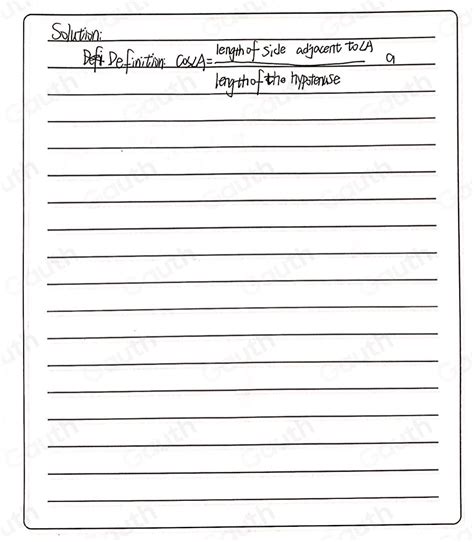 Solution:
Defi Definition: cos∠A = length of side adjacent to ∠A a
length of the hypotenuse